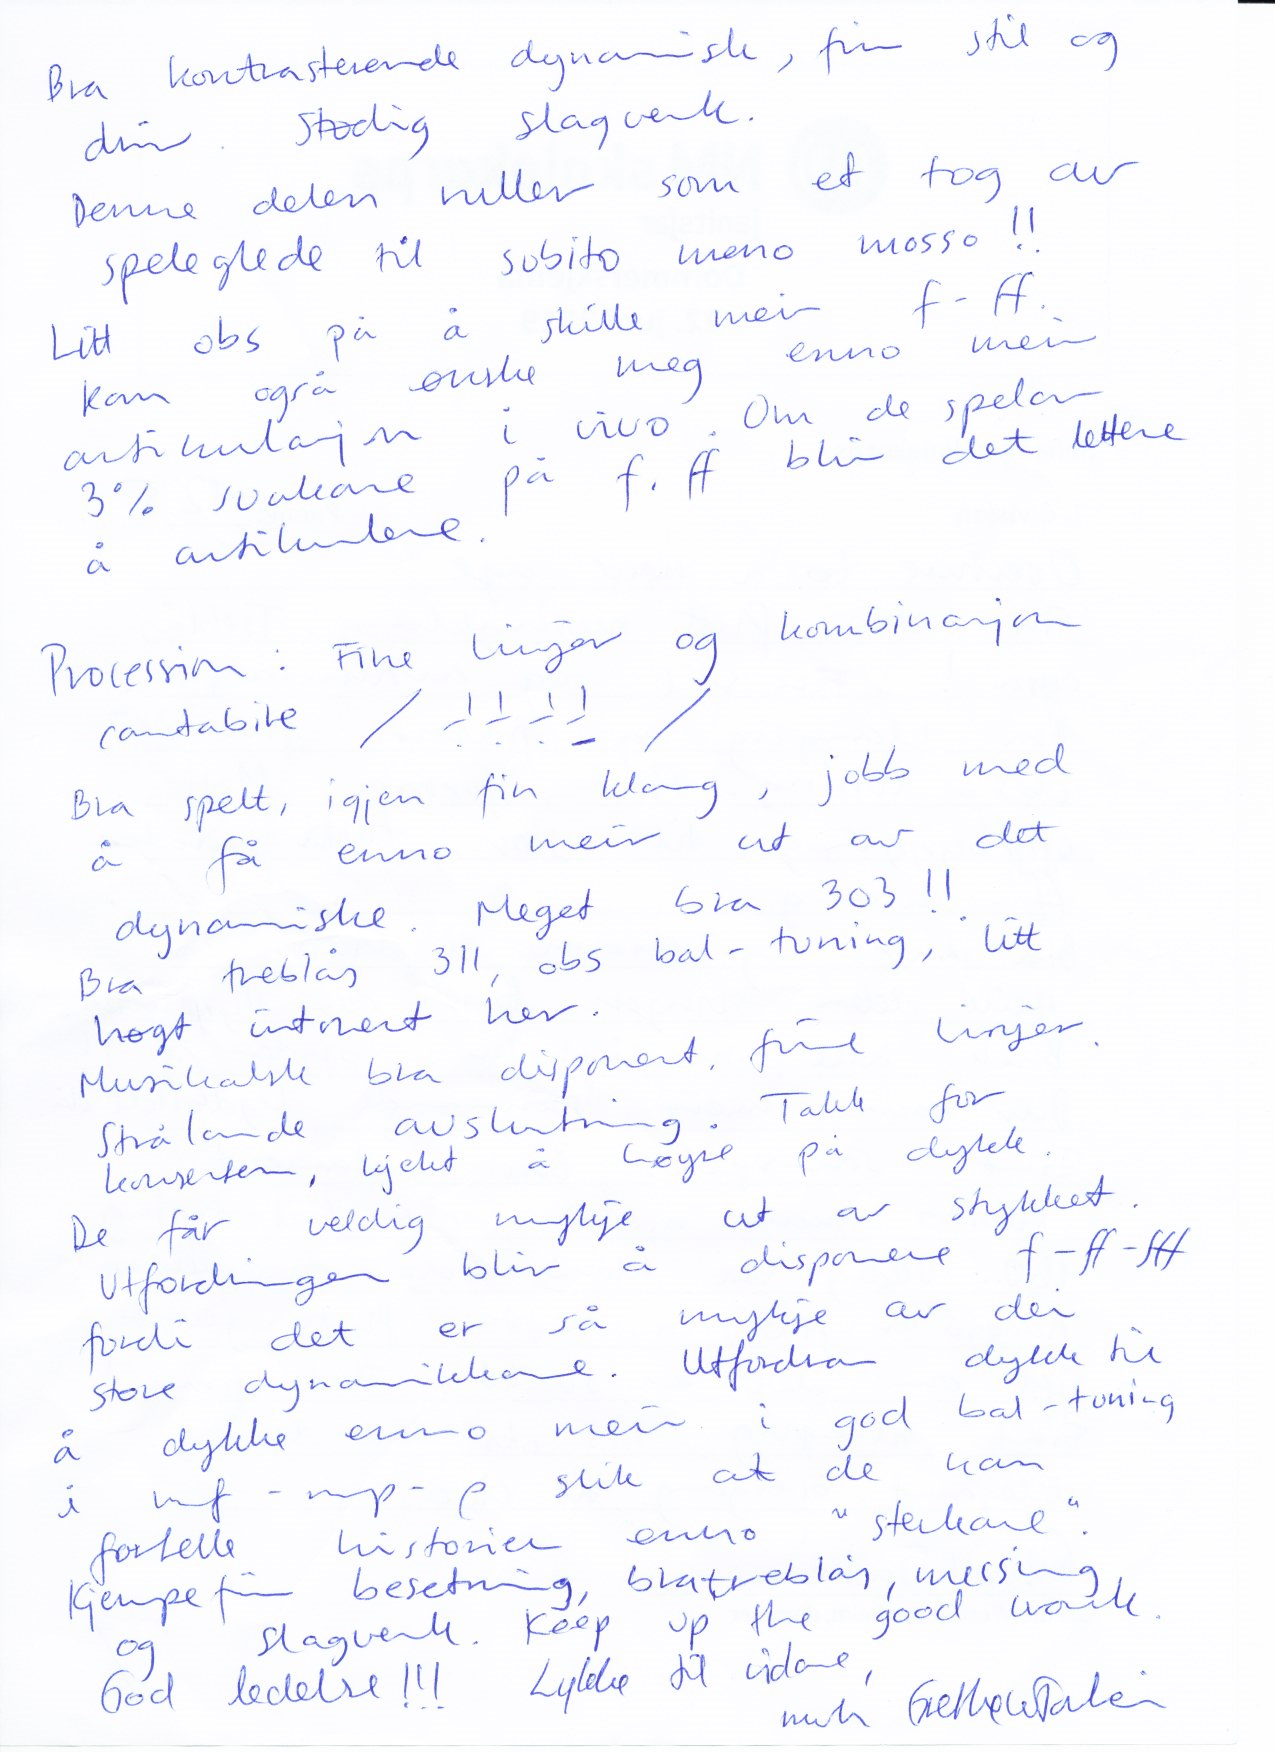 Bra kontrasterende dynamisk, fin stil og
driv. Stødig slagverk.
Denne delen ruller som et tog av
speleglede til subito meno mosso!!
Litt obs på å skille meir f - ff.
Kan også ønske meg enno meir
artikulasjon i vivo. Om de spelar
3% svakare på f. ff blir det lettere
å artikulere.
Procession: Fine linjer og kombinasjon
cantabile / !!!! /
Bra spelt, igjen fin klang, jobb med
å få enno meir ut av det
dynamiske. Meget bra 303!!
Bra treblås 311, obs bal-tuning, litt
høgt intonert her.
Musikalsk bra disponert, fine linjer.
Strålande avslutning. Takk for
konserten, kjekt å høyre på dykk.
De får veldig mykje ut av stykket.
Utfordringen blir å disponere f - ff - fff
fordi det er så mykje av dei
store dynamikkane. Utfordrar dykk til
å dykke enno meir i god bal-tuning
i mf - mp - p slik at de kan
fortelle historien enno "sterkare".
Kjempefin besetning, bra treblås, messing
og slagverk. Keep up the good work.
God ledelse!!! Lykke til vidare,
mvh